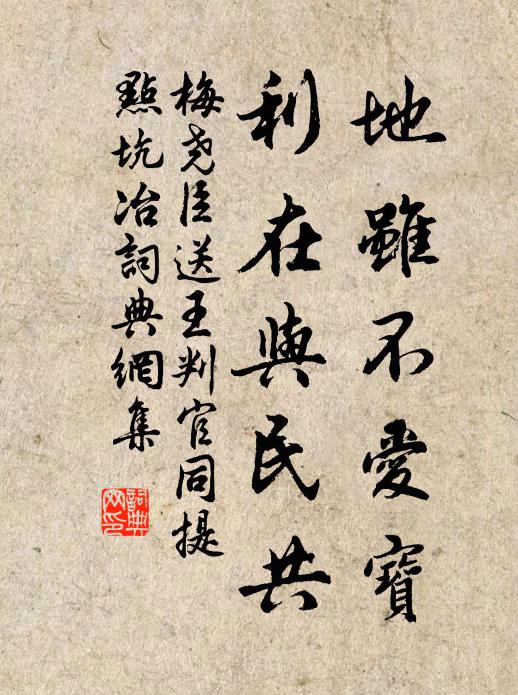 地雖不愛寶
利在與民共
梅堯臣送王判官同提
點坑冶詞典網集
詞典网印